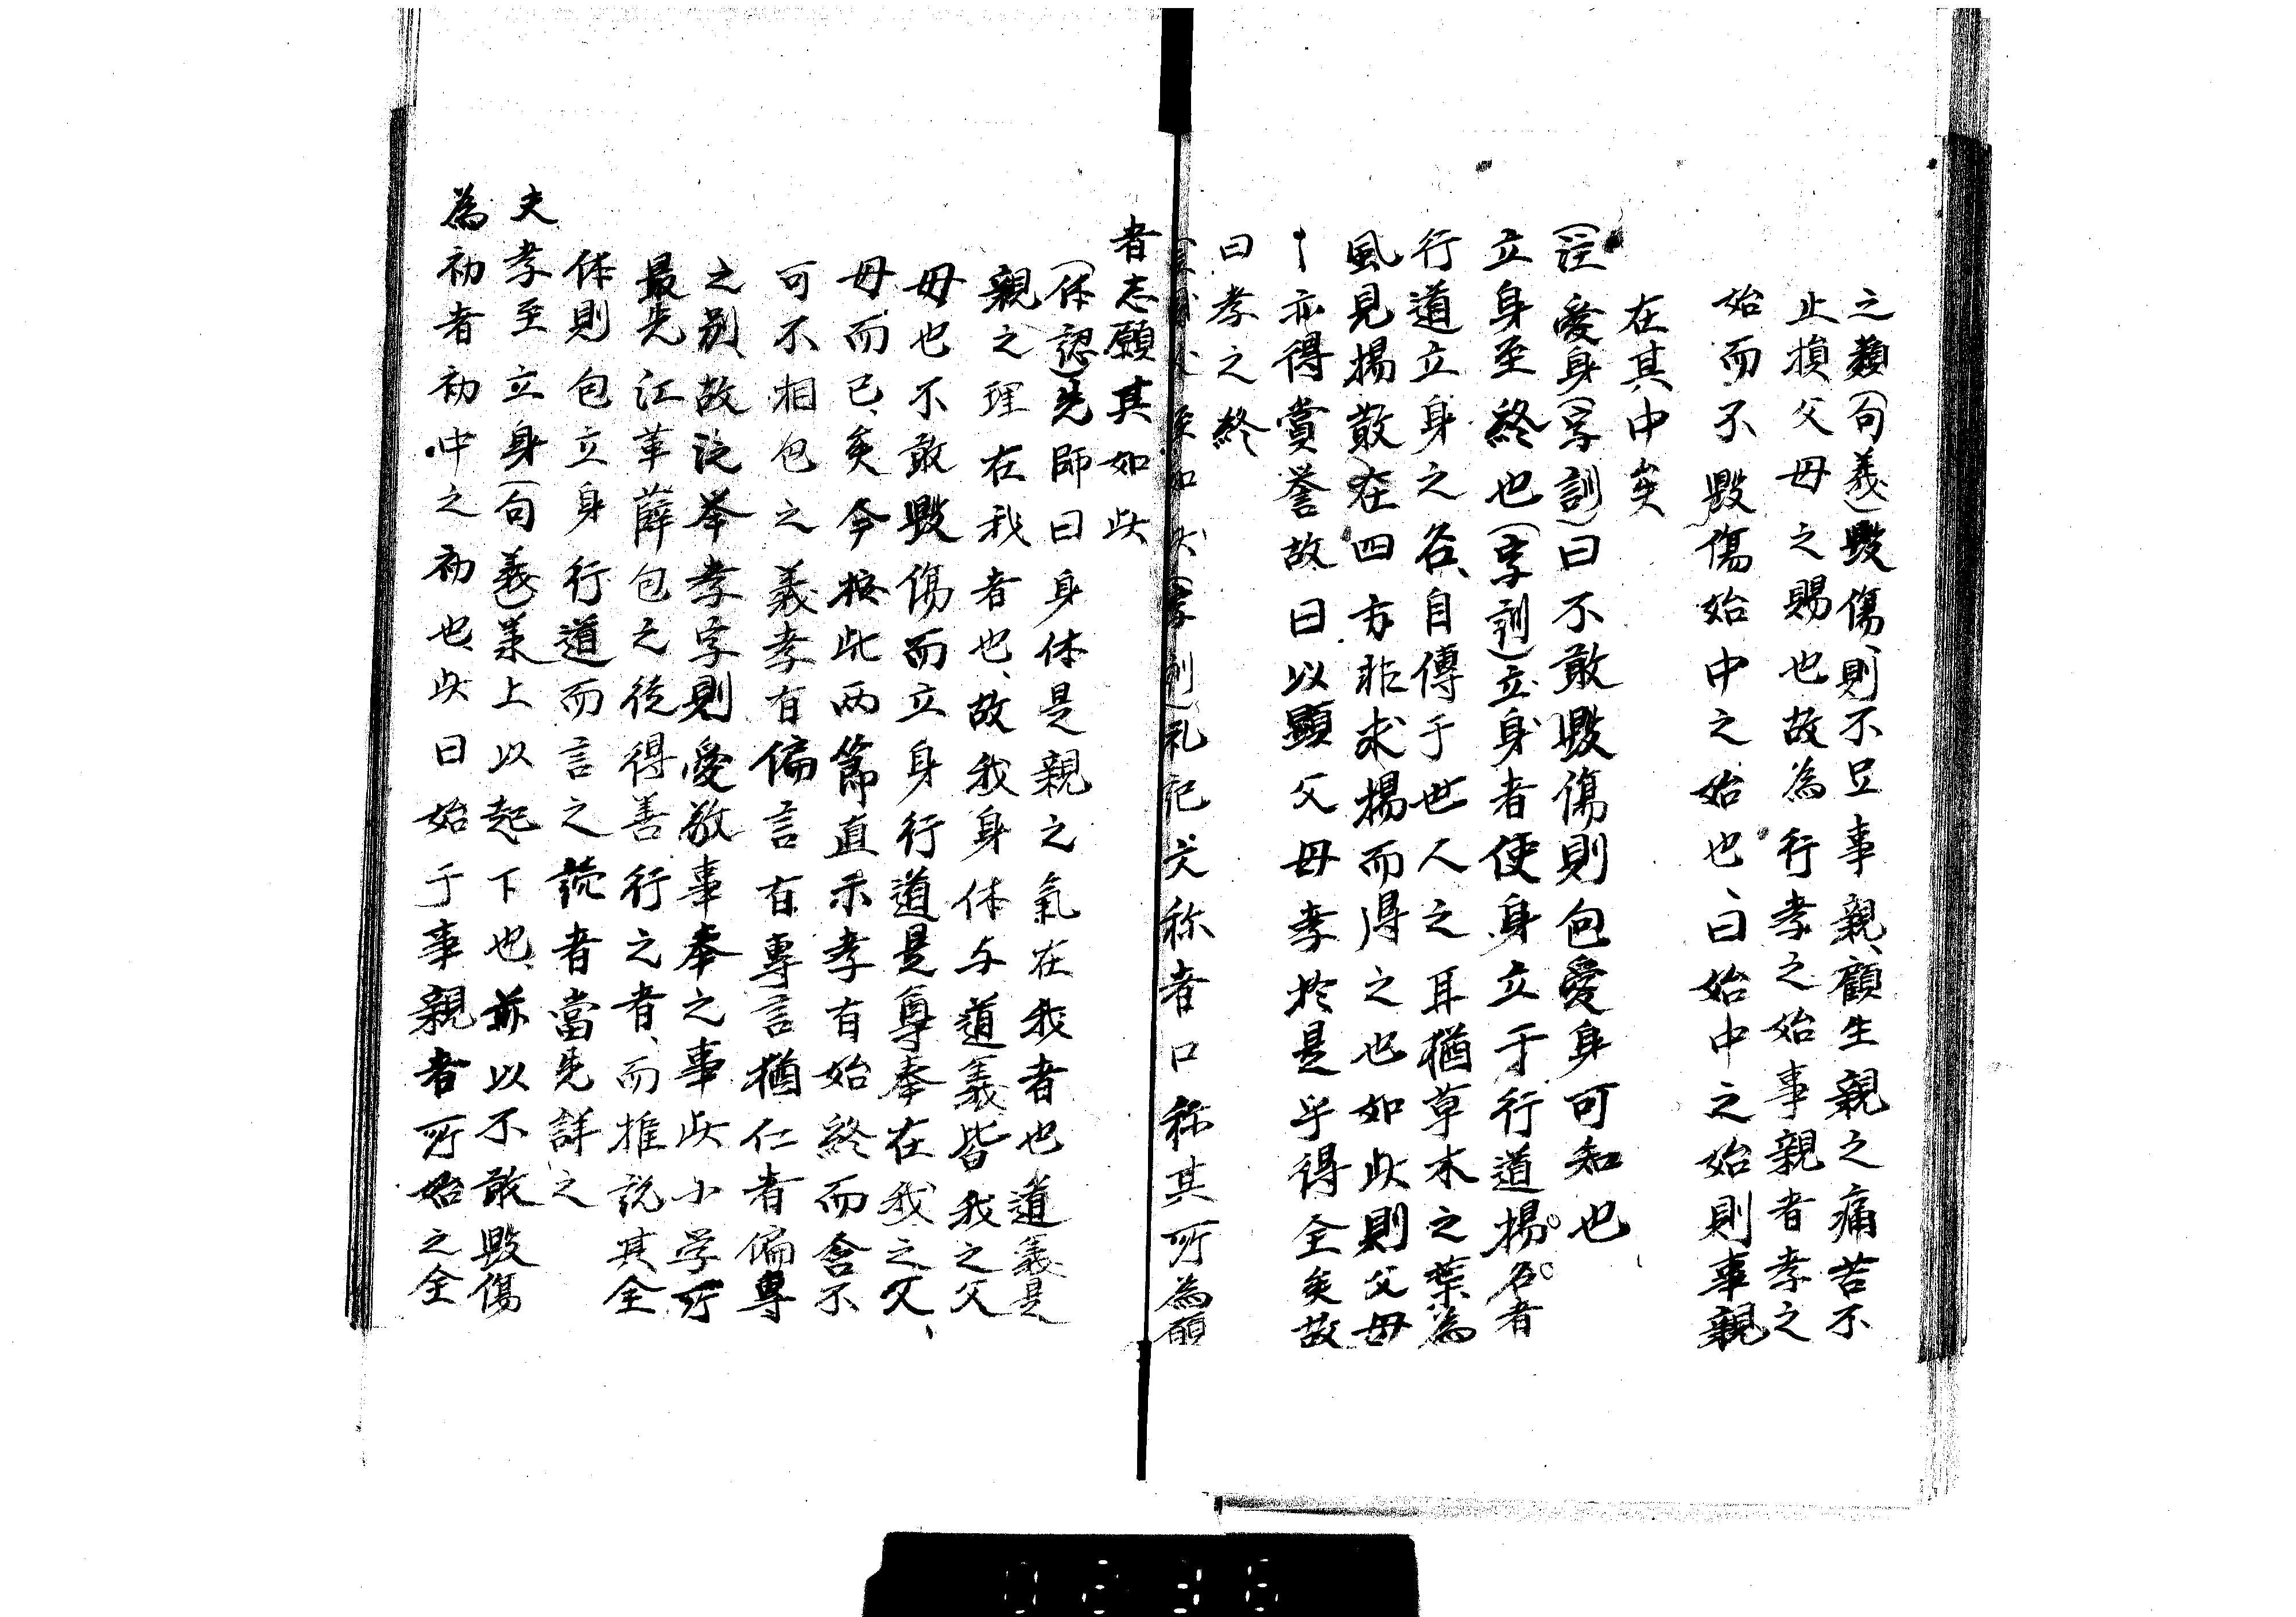 之類(句義)毀傷、則不足事親、顧生親之痛苦不
止損父母之賜也故為行孝之始事親者孝之
始而不毀傷始中之始也、曰始中之始則事親
在其中矣
(註)愛身(字訓)曰不敢毀傷則包愛身可知也
立身至終也(字訓)立身者使身立于行道揚名者
行道立身之名、自傳于世人之耳猶草木之葉為
風見揚散在四方非求揚而得之也如此則父母
亦得賞誉故曰以顕父母孝於是乎得全矣故
曰孝之終
礼記 称者口称其所為願
者志願其如此
(体認)先師曰身体是親之氣在我者也道義是
親之理在我者也、故我身体与道義皆我之父
母也不敢毀傷而立身行道是尊奉在我之父、
母而已、矣今按此両節直示孝有始終而含不
可不相包之義孝有偏言有專言猶仁者偏專
之別、故泛挙孝字則愛敬事奉之事此小学所
最先江革薛包之徒得善行之者、而推說其全
体則包立身行道而言之読者當先詳之
夫孝至立身(句義)業上以起下也、前以不敢毀傷
為初者初中之初也、此曰始于事親者所始之全